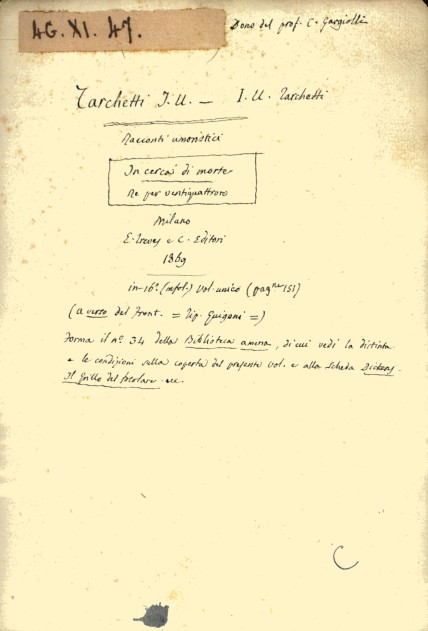 4G. XI. 47.
Dono del prof. C. Gargiolli
Tarchetti I. U. — I. U. Tarchetti
Racconti umoristici
In cerca di morte
Re per ventiquattrore
Milano
E. Treves e C. Editori
1869
in-16º. (refol.) vol. unico (pagne 151)
(a verso del front. = Tip. Guigoni =)
Forma il nº. 34 della Biblioteca amena, di cui vedi la distinta
e le condizioni sulla coperta del presente vol. e alla scheda Dickens.
Il Grillo del focolare ecc.
C